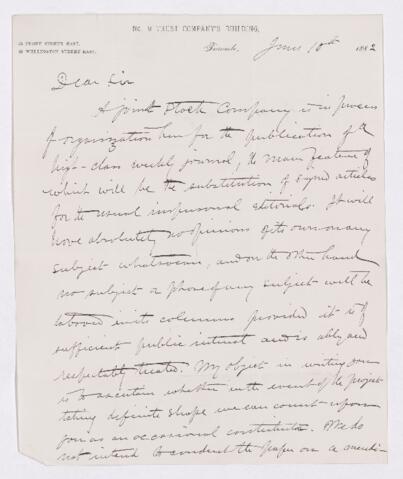 No. 9 TRUST COMPANY'S BUILDING,
FRONT STREET EAST,
WELLINGTON STREET EAST.
Toronto, June 10th 1882
Dear Sir
A joint Stock Company is in process
of organization here for the publication of a
high-class weekly journal, the main feature of
which will be the substitution of signed articles
for the usual impersonal editorials. It will
have absolutely no opinions of its own on any
subject whatsoever, and on the other hand
no subject or phase of any subject will be
tabooed in its columns provided it is of
sufficient public interest and is ably and
respectably treated. My object in writing you
is to ascertain whether in the event of the project
taking definite shape we can count upon
you as an occasional contributor. We do
not intend to conduct the paper on a mendi-